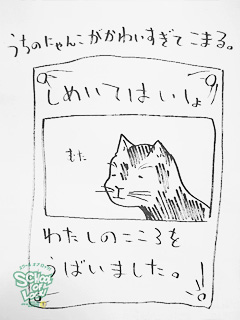 うちのにゃんこがかわいすぎてこまる。
しめいてはいしょ
むた
わたしのこころを
うばいました。!
School of Lock!